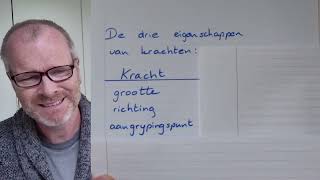 De drie eigenschappen
van krachten:
Kracht
grootte
richting
aangrypingspunt